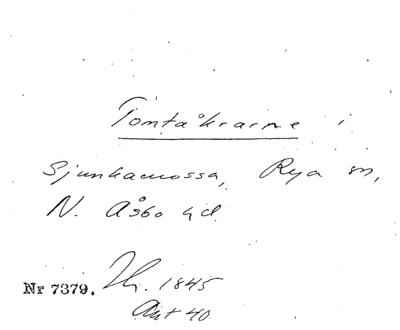 Tomtåkrarne i
Sjunkamossa, Rya sn,
N. Åsbo hd.
Nr 7379. Th. 1845
Art 40